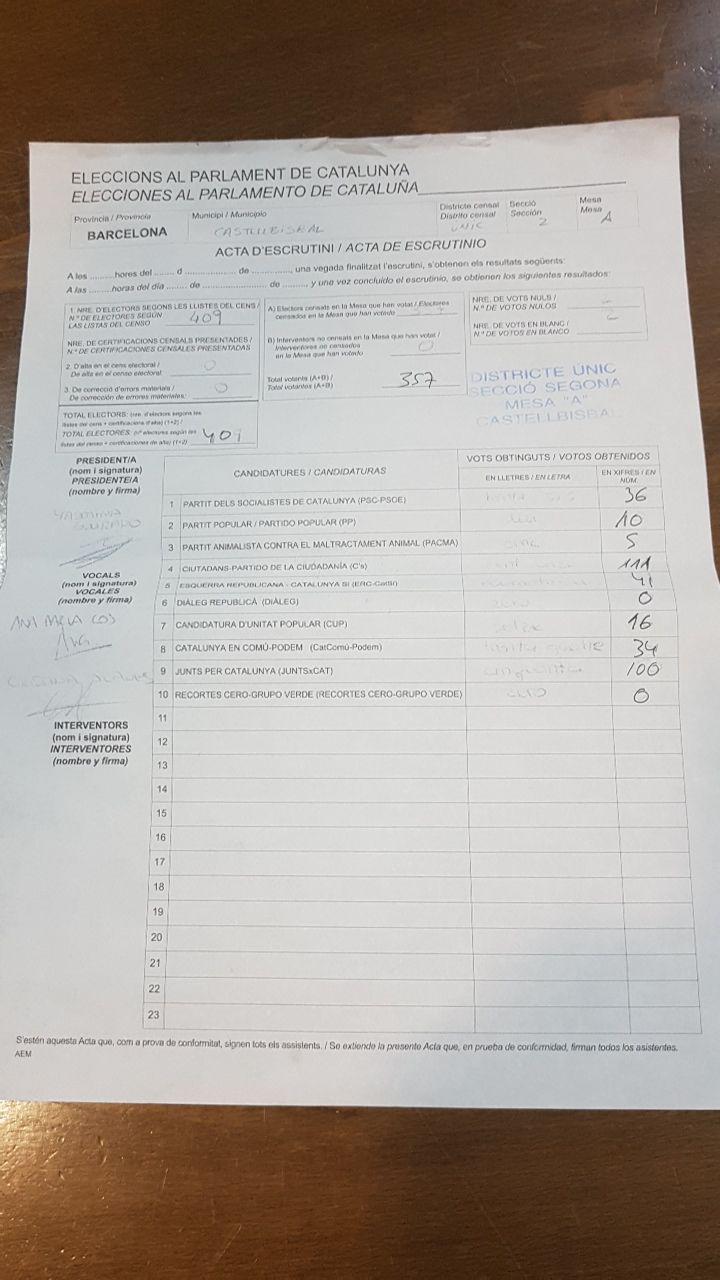 ELECCIONS AL PARLAMENT DE CATALUNYA
ELECCIONES AL PARLAMENTO DE CATALUÑA
Província / Provincia
BARCELONA
Municipi / Municipio
CASTELLBISBAL
Districte censal
Distrito censal
UNIC
Secció
Sección
2
Mesa
Mesa
A
ACTA D'ESCRUTINI / ACTA DE ESCRUTINIO
A les .........hores del ....... d ..................... de ..............., una vegada finalitzat l'escrutini, s'obtenen els resultats següents:
A las .........horas del día ........ de ........................... de ............, y una vez concluido el escrutinio, se obtienen los siguientes resultados:
1. NRE. D'ELECTORS SEGONS LES LLISTES DEL CENS /
N.º DE ELECTORES SEGÚN
LAS LISTAS DEL CENSO
409
NRE. DE CERTIFICACIONS CENSALS PRESENTADES /
N.º DE CERTIFICACIONES CENSALES PRESENTADAS
2. D'alta en el cens electoral /
De alta en el censo electoral:
0
3. De correcció d'errors materials /
De corrección de errores materiales:
0
TOTAL ELECTORS: (nre. d'electors segons les
llistes del cens + certificacions d'alta) (1+2) /
TOTAL ELECTORES: (nº electores según las
listas del censo + certificaciones de alta) (1+2)
A) Electors censats en la Mesa que han votat / Electores
censados en la Mesa que han votado
B) Interventors no censats en la Mesa que han votat /
Interventores no censados
en la Mesa que han votado
0
Total votants (A+B) /
Total votantes (A+B)
357
NRE. DE VOTS NULS /
N.º DE VOTOS NULOS
NRE. DE VOTS EN BLANC /
N.º DE VOTOS EN BLANCO
DISTRICTE ÚNIC
SECCIÓ SEGONA
MESA "A"
CASTELLBISBAL
PRESIDENT/A
(nom i signatura)
PRESIDENTE/A
(nombre y firma)
VOCALS
(nom i signatura)
VOCALES
(nombre y firma)
INTERVENTORS
(nom i signatura)
INTERVENTORES
(nombre y firma)
CANDIDATURES / CANDIDATURAS
VOTS OBTINGUTS / VOTOS OBTENIDOS
EN LLETRES / EN LETRA
EN XIFRES / EN NÚM.
1 PARTIT DELS SOCIALISTES DE CATALUNYA (PSC-PSOE) 36
2 PARTIT POPULAR / PARTIDO POPULAR (PP) 10
3 PARTIT ANIMALISTA CONTRA EL MALTRACTAMENT ANIMAL (PACMA) 5
4 CIUTADANS-PARTIDO DE LA CIUDADANÍA (C's) 111
5 ESQUERRA REPUBLICANA - CATALUNYA SÍ (ERC-CatSí) 41
6 DIÀLEG REPUBLICÀ (DIÀLEG) 0
7 CANDIDATURA D'UNITAT POPULAR (CUP) 16
8 CATALUNYA EN COMÚ-PODEM (CatComú-Podem) 34
9 JUNTS PER CATALUNYA (JUNTSxCAT) 100
10 RECORTES CERO-GRUPO VERDE (RECORTES CERO-GRUPO VERDE) 0
11
12
13
14
15
16
17
18
19
20
21
22
23
S'estén aquesta Acta que, com a prova de conformitat, signen tots els assistents. / Se extiende la presente Acta que, en prueba de conformidad, firman todos los asistentes.
AEM